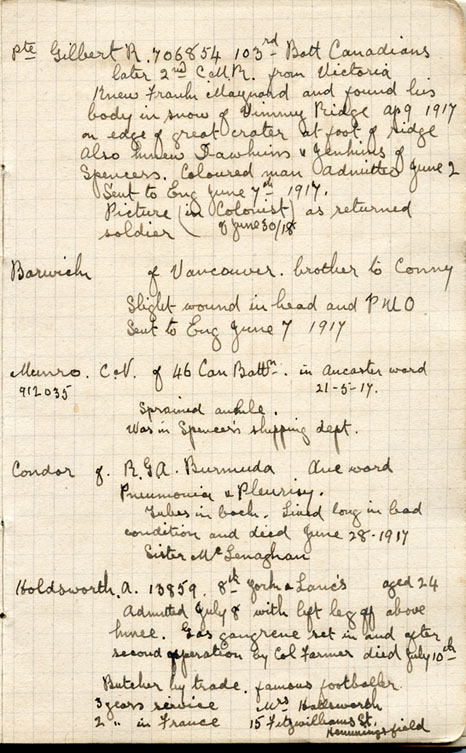 Pte Gilbert R. 706854 103rd Batt Canadians
later 2nd C.M.R. from Victoria
Knew Frank Maynard and found his
body in snow of Vimmy Ridge ap 9 1917
on edge of great crater at foot of ridge
Also knew Dawkins & Jenkins of
Spencers. Coloured man admitted June 2
Sent to Eng June 7th 1917.
Picture (in Colonist) as returned
soldier of June 30/18
Barwick of Vancouver. brother to Conny
Slight wound in head and P.U.O
Sent to Eng June 7 1917
Munro. C.N. of 46 Can Battn. in Ancaster ward
912035 21-5-17.
Sprained ankle.
Was in Spencer's shipping dept.
Condor of R.G.A. Burmuda Anc ward
Pneumonia & Pleurisy.
Tubes in back. Lived long in bad
condition and died June 28-1917
Sister McLenaghan
Holdsworth A. 13859. 8th York & Lancs aged 24
Admitted July 8 with left leg off above
knee. Gas gangrene set in and after
second operation by Col Farmer died July 10th
Butcher by trade. famous footballer.
3 years service Mrs Holdsworth
2 " in France 15 Fitzwilliams St.
Hemmingsfield